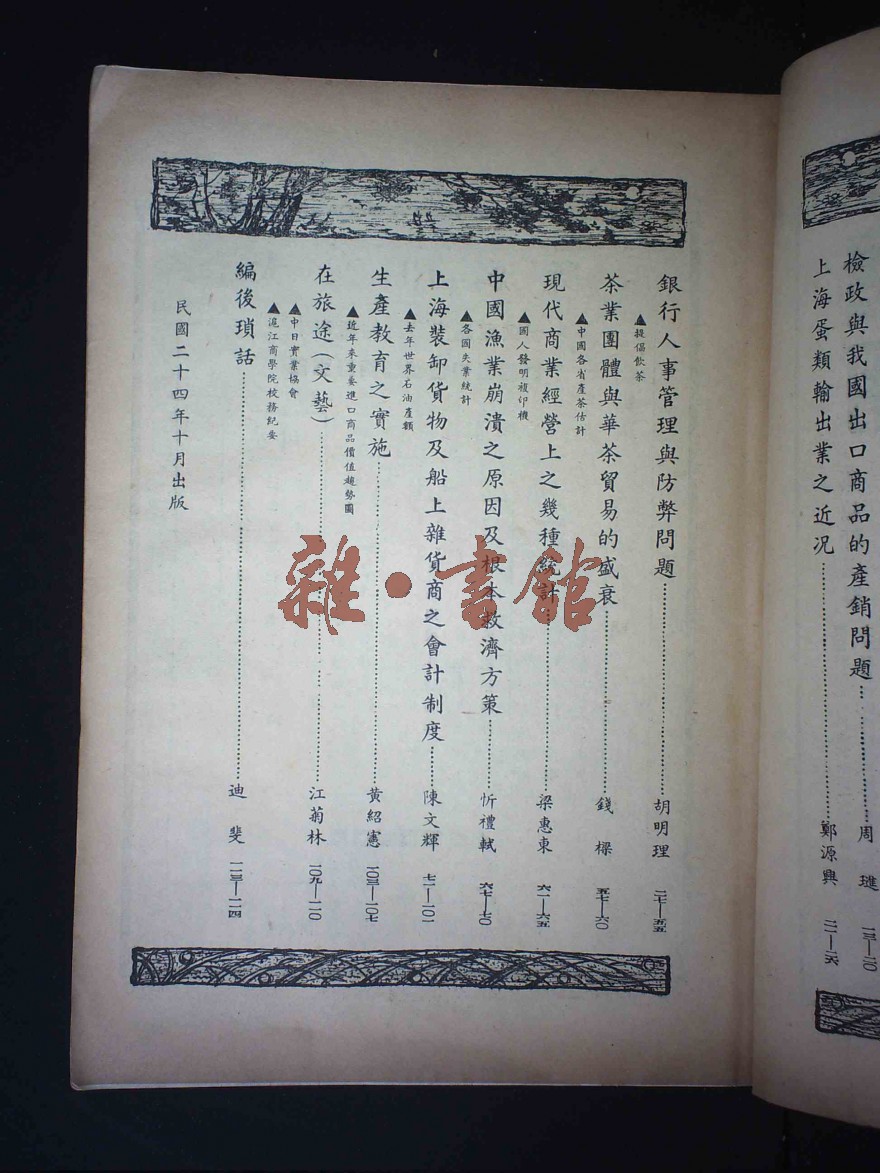 檢政與我國出口商品的產銷問題……周 璡 一三—二〇
上海蛋類輸出業之近况……鄭源興 二一—二六
銀行人事管理與防弊問題……胡明理 二七—五五
▲提倡飲茶
茶業團體與華茶貿易的盛衰……錢 樑 五七—六〇
▲中國各省產茶估計
現代商業經營上之幾種統計……梁惠東 六一—六五
▲國人發明複印機
中國漁業崩潰之原因及根本救濟方策……忻禮軾 六七—七〇
▲各國失業統計
上海裝卸貨物及船上雜貨商之會計制度……陳文輝 七一—一〇一
▲去年世界石油產額
生產教育之實施……黃紹憲 一〇三—一〇七
▲近年來重要進口商品價值趨勢圖
在旅途(文藝)……江菊林 一〇九—一一〇
▲中日實業協會
▲滬江商學院校務紀要
編後瑣話……迪 斐 一一三—一一四
民國二十四年十月出版
雜·書館